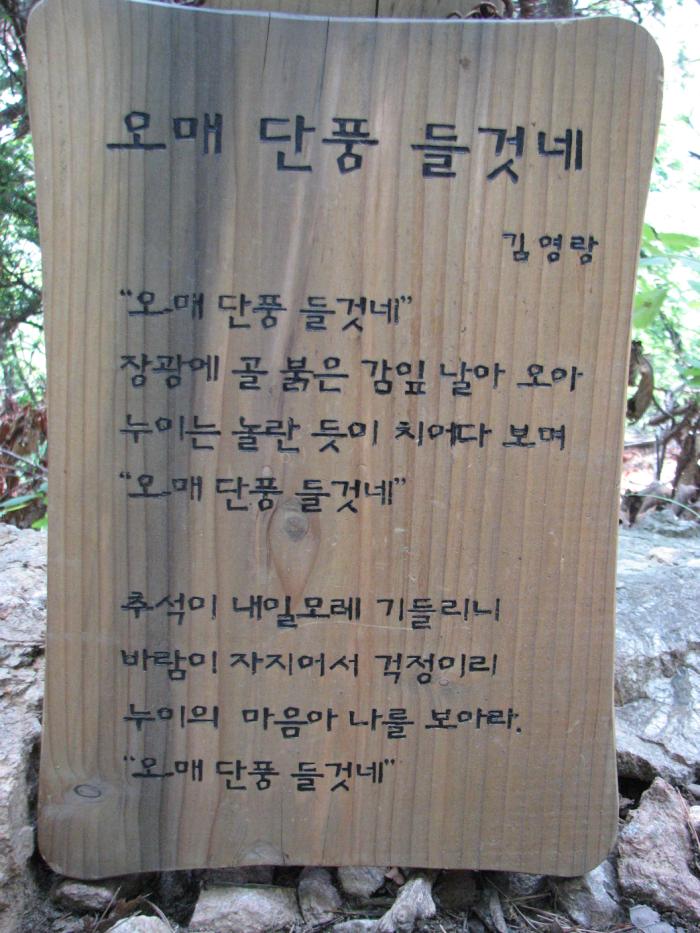 오매 단풍 들것네
김영랑
“오매 단풍 들것네”
장광에 골 붉은 감잎 날아 오아
누이는 놀란 듯이 치어다 보며
“오매 단풍 들것네”
추석이 내일모레 기둘리니
바람이 자지어서 걱정이리
누이의 마음아 나를 보아라.
“오매 단풍 들것네”